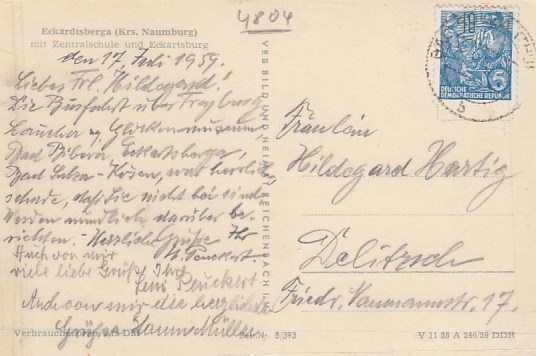 4804
Eckardtsberga (Krs. Naumburg)
mit Zentralschule und Eckartsburg
den 17. Juli 1959.
Liebes Frl. Hildegard!
Die Busfahrt über Freyburg
Laucha Glockenmuseum
Bad Bibra, Eckartsberga,
Bad Sulza - Kösen, war herrlich
schade, daß Sie nicht bei sind.
Werden mündlich darüber be-
richten. - Herzliche Grüße Ihr
Peuckert
Auch von mir
viele liebe Grüße Ihre
Leni Peuckert
Auch von mir die herzlichsten
Grüße Müller
VEB BILD UND HEIMAT REICHENBACH I. V.
DEUTSCHE
DEMOKRATISCHE REPUBLIK
5
Fräulein
Hildegard Hartig
Delitzsch
Friedr. Naumannstr. 17.
Verbraucherpreis
Best.-Nr. 8/393
V 11 28 A 246/59 DDR